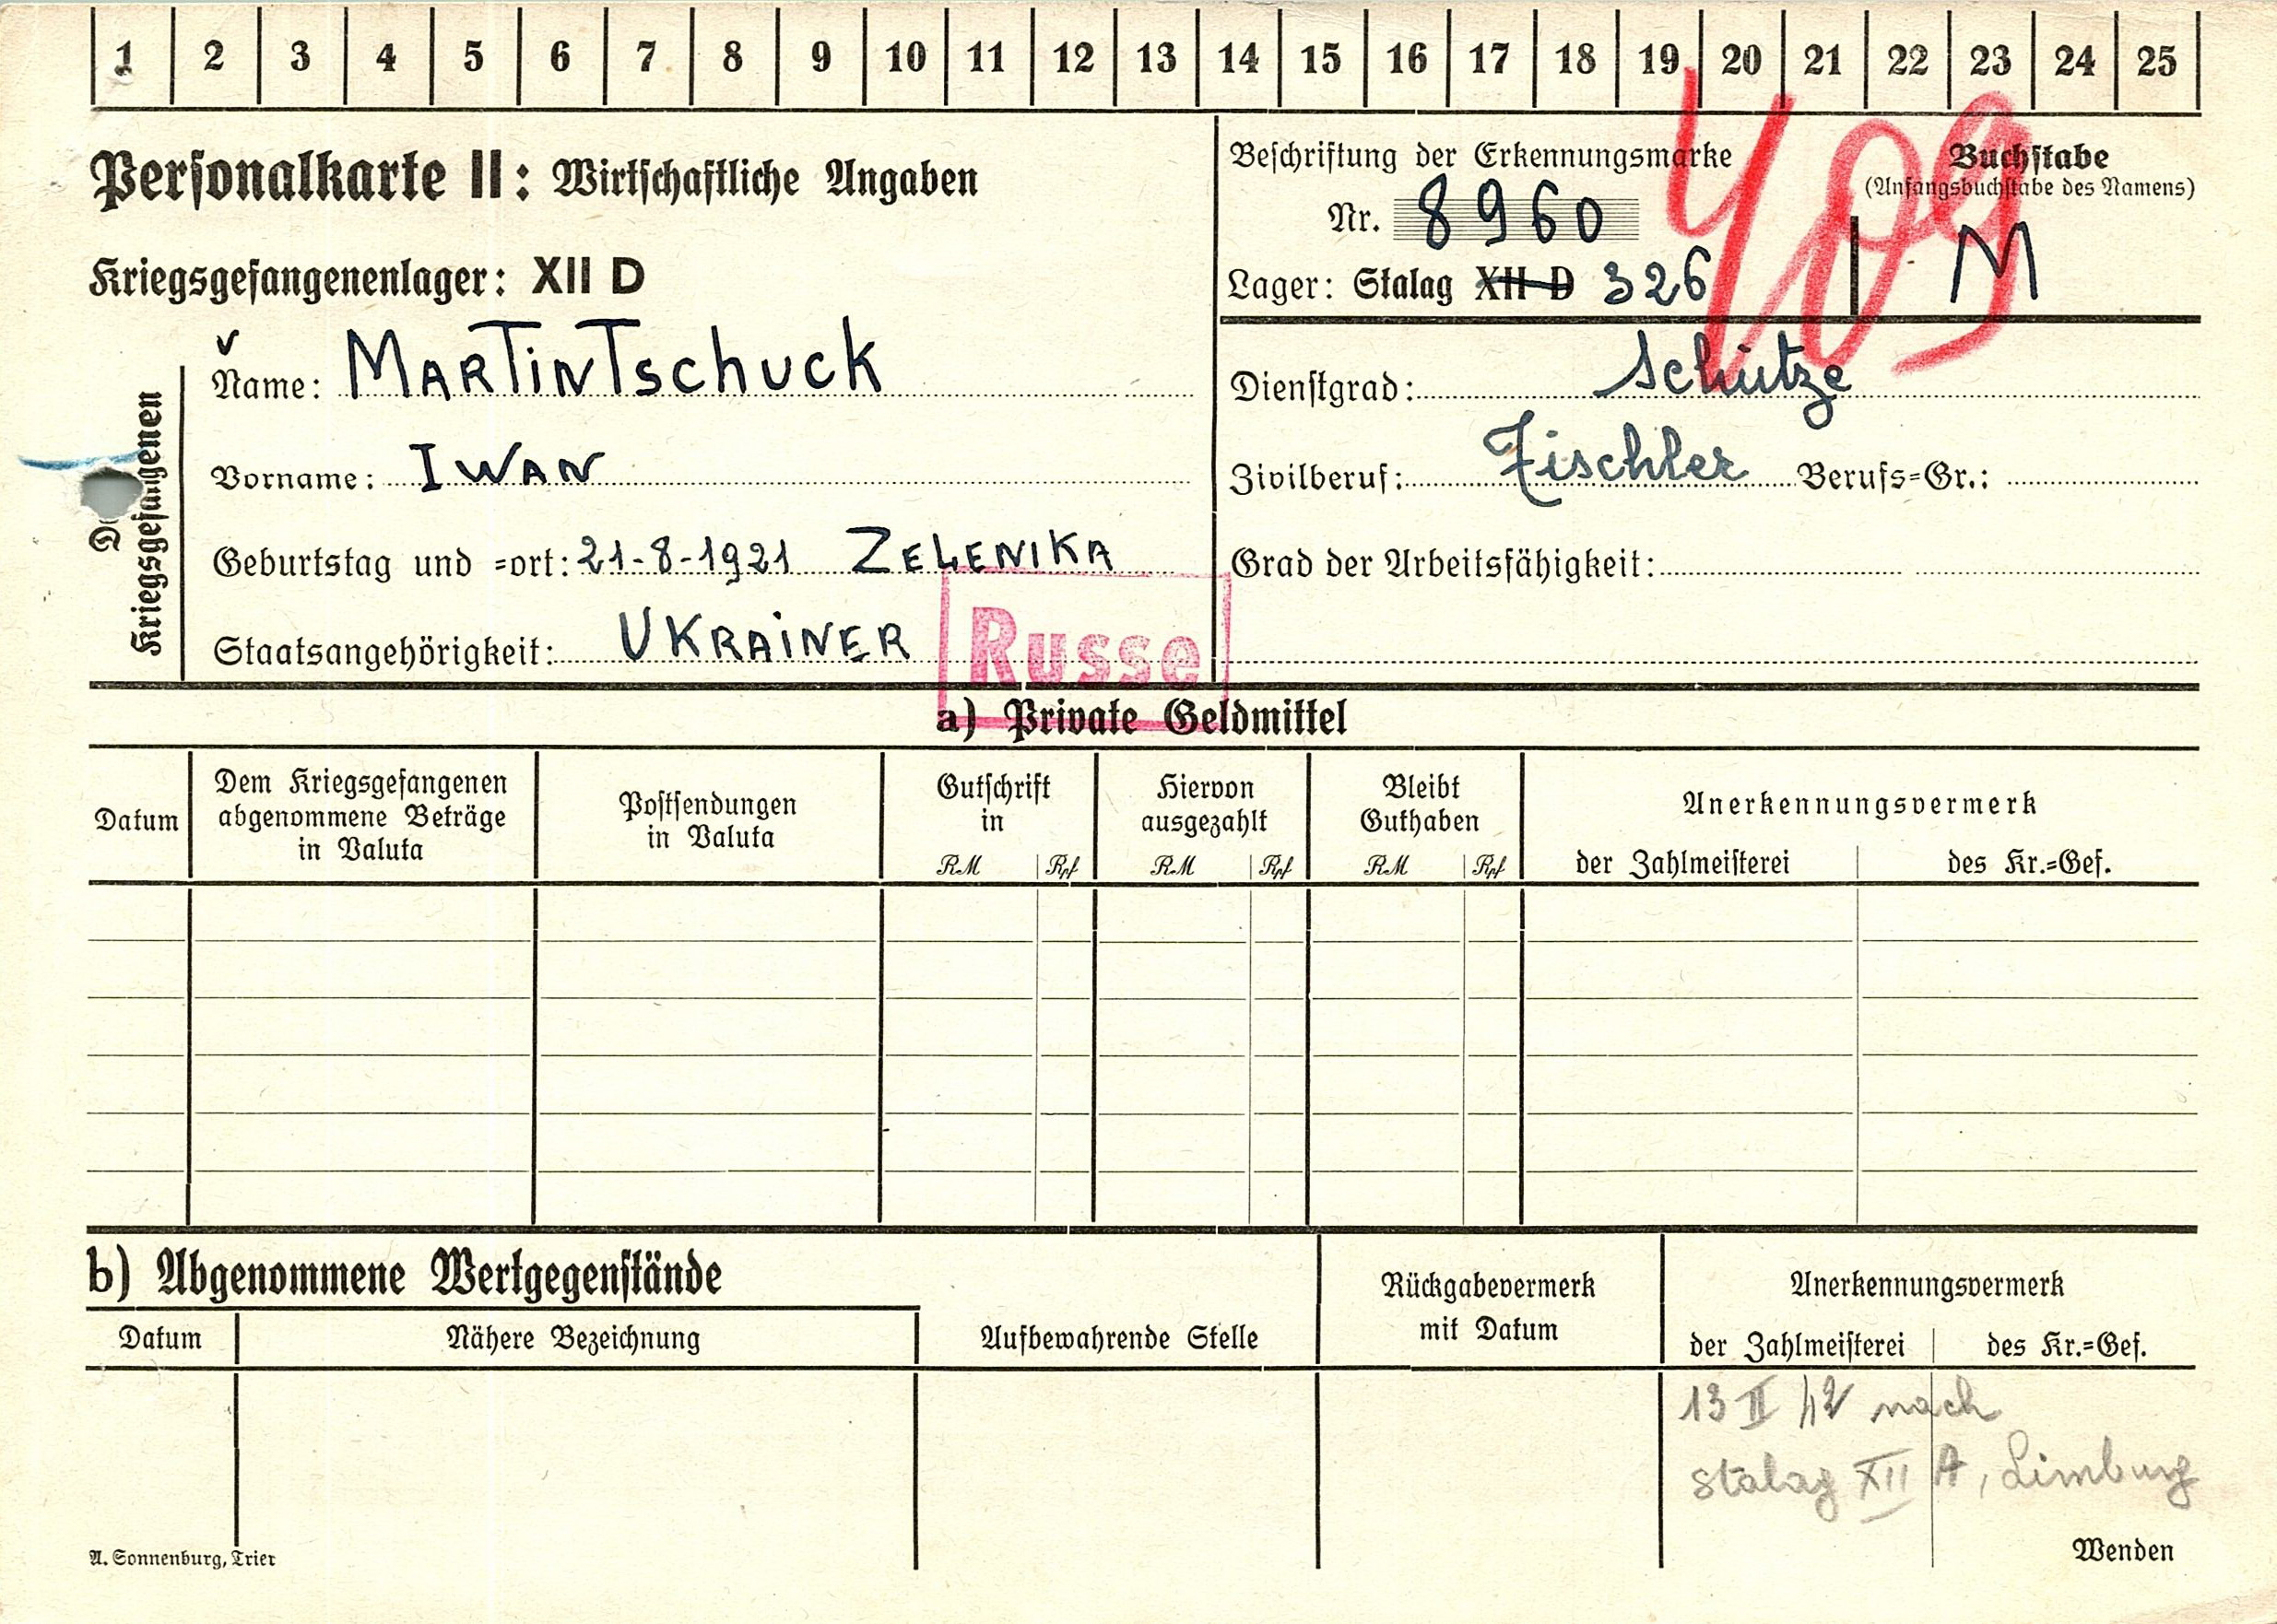 1 2 3 4 5 6 7 8 9 10 11 12 13 14 15 16 17 18 19 20 21 22 23 24 25
Personalkarte II: Wirtschaftliche Angaben
Kriegsgefangenenlager: XII D
Beschriftung der Erkennungsmarke
Nr. 8960
Lager: Stalag XII D 326
409
Buchstabe
(Anfangsbuchstabe des Namens)
M
Kriegsgefangenen
Name: MARTINTSCHUCK
Vorname: IWAN
Geburtstag und =ort: 21-8-1921 ZELENIKA
Staatsangehörigkeit: UKRAINER
Russe
Dienstgrad: Schütze
Zivilberuf: Tischler Berufs=Gr.:
Grad der Arbeitsfähigkeit:
a) Private Geldmittel
Datum
Dem Kriegsgefangenen
abgenommene Beträge
in Valuta
Postsendungen
in Valuta
Gutschrift
in
RM Rpf
Hiervon
ausgezahlt
RM Rpf
Bleibt
Guthaben
RM Rpf
Anerkennungsvermerk
der Zahlmeisterei des Kr.=Gef.
b) Abgenommene Wertgegenstände
Datum Nähere Bezeichnung Aufbewahrende Stelle
Rückgabevermerk
mit Datum
Anerkennungsvermerk
der Zahlmeisterei des Kr.=Gef.
13 II 42 nach
Stalag XII A, Limburg
A. Sonnenburg, Trier
Wenden